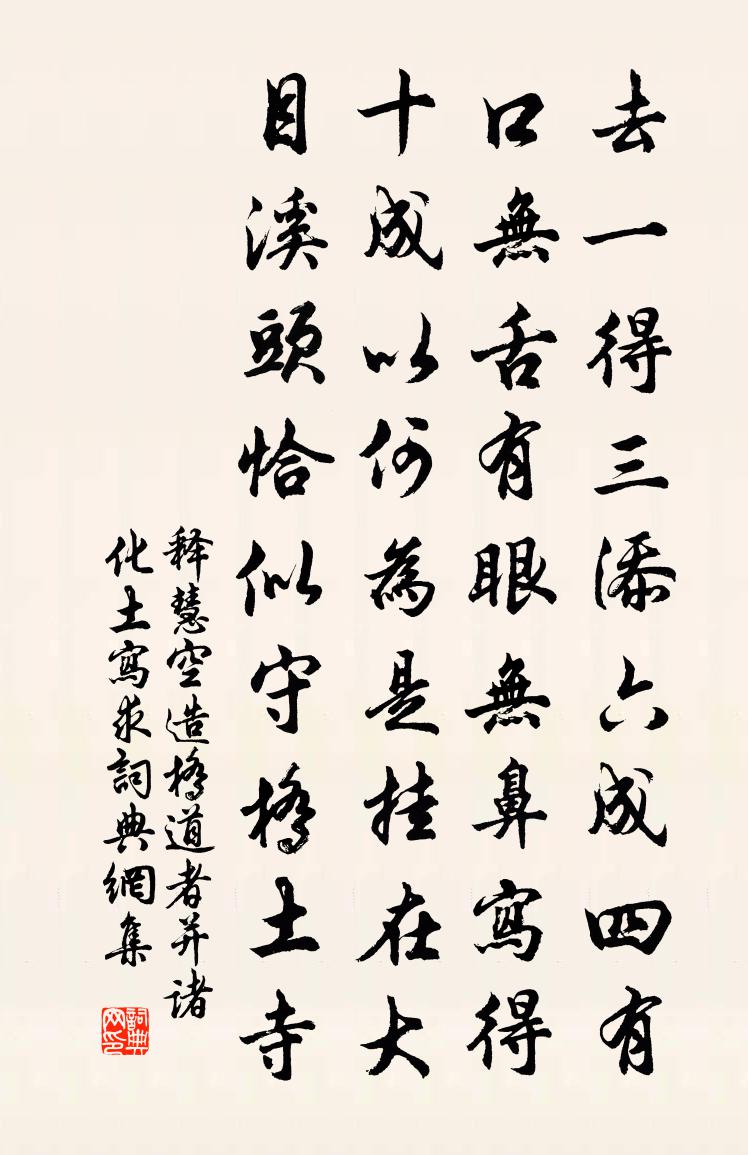 去一得三添六成四有
口無舌有眼無鼻寫得
十成以何為是挂在大
目溪頭恰似守橋土寺
释慧空造橋道者并诸
化士寫求詞典網集
詞典网印